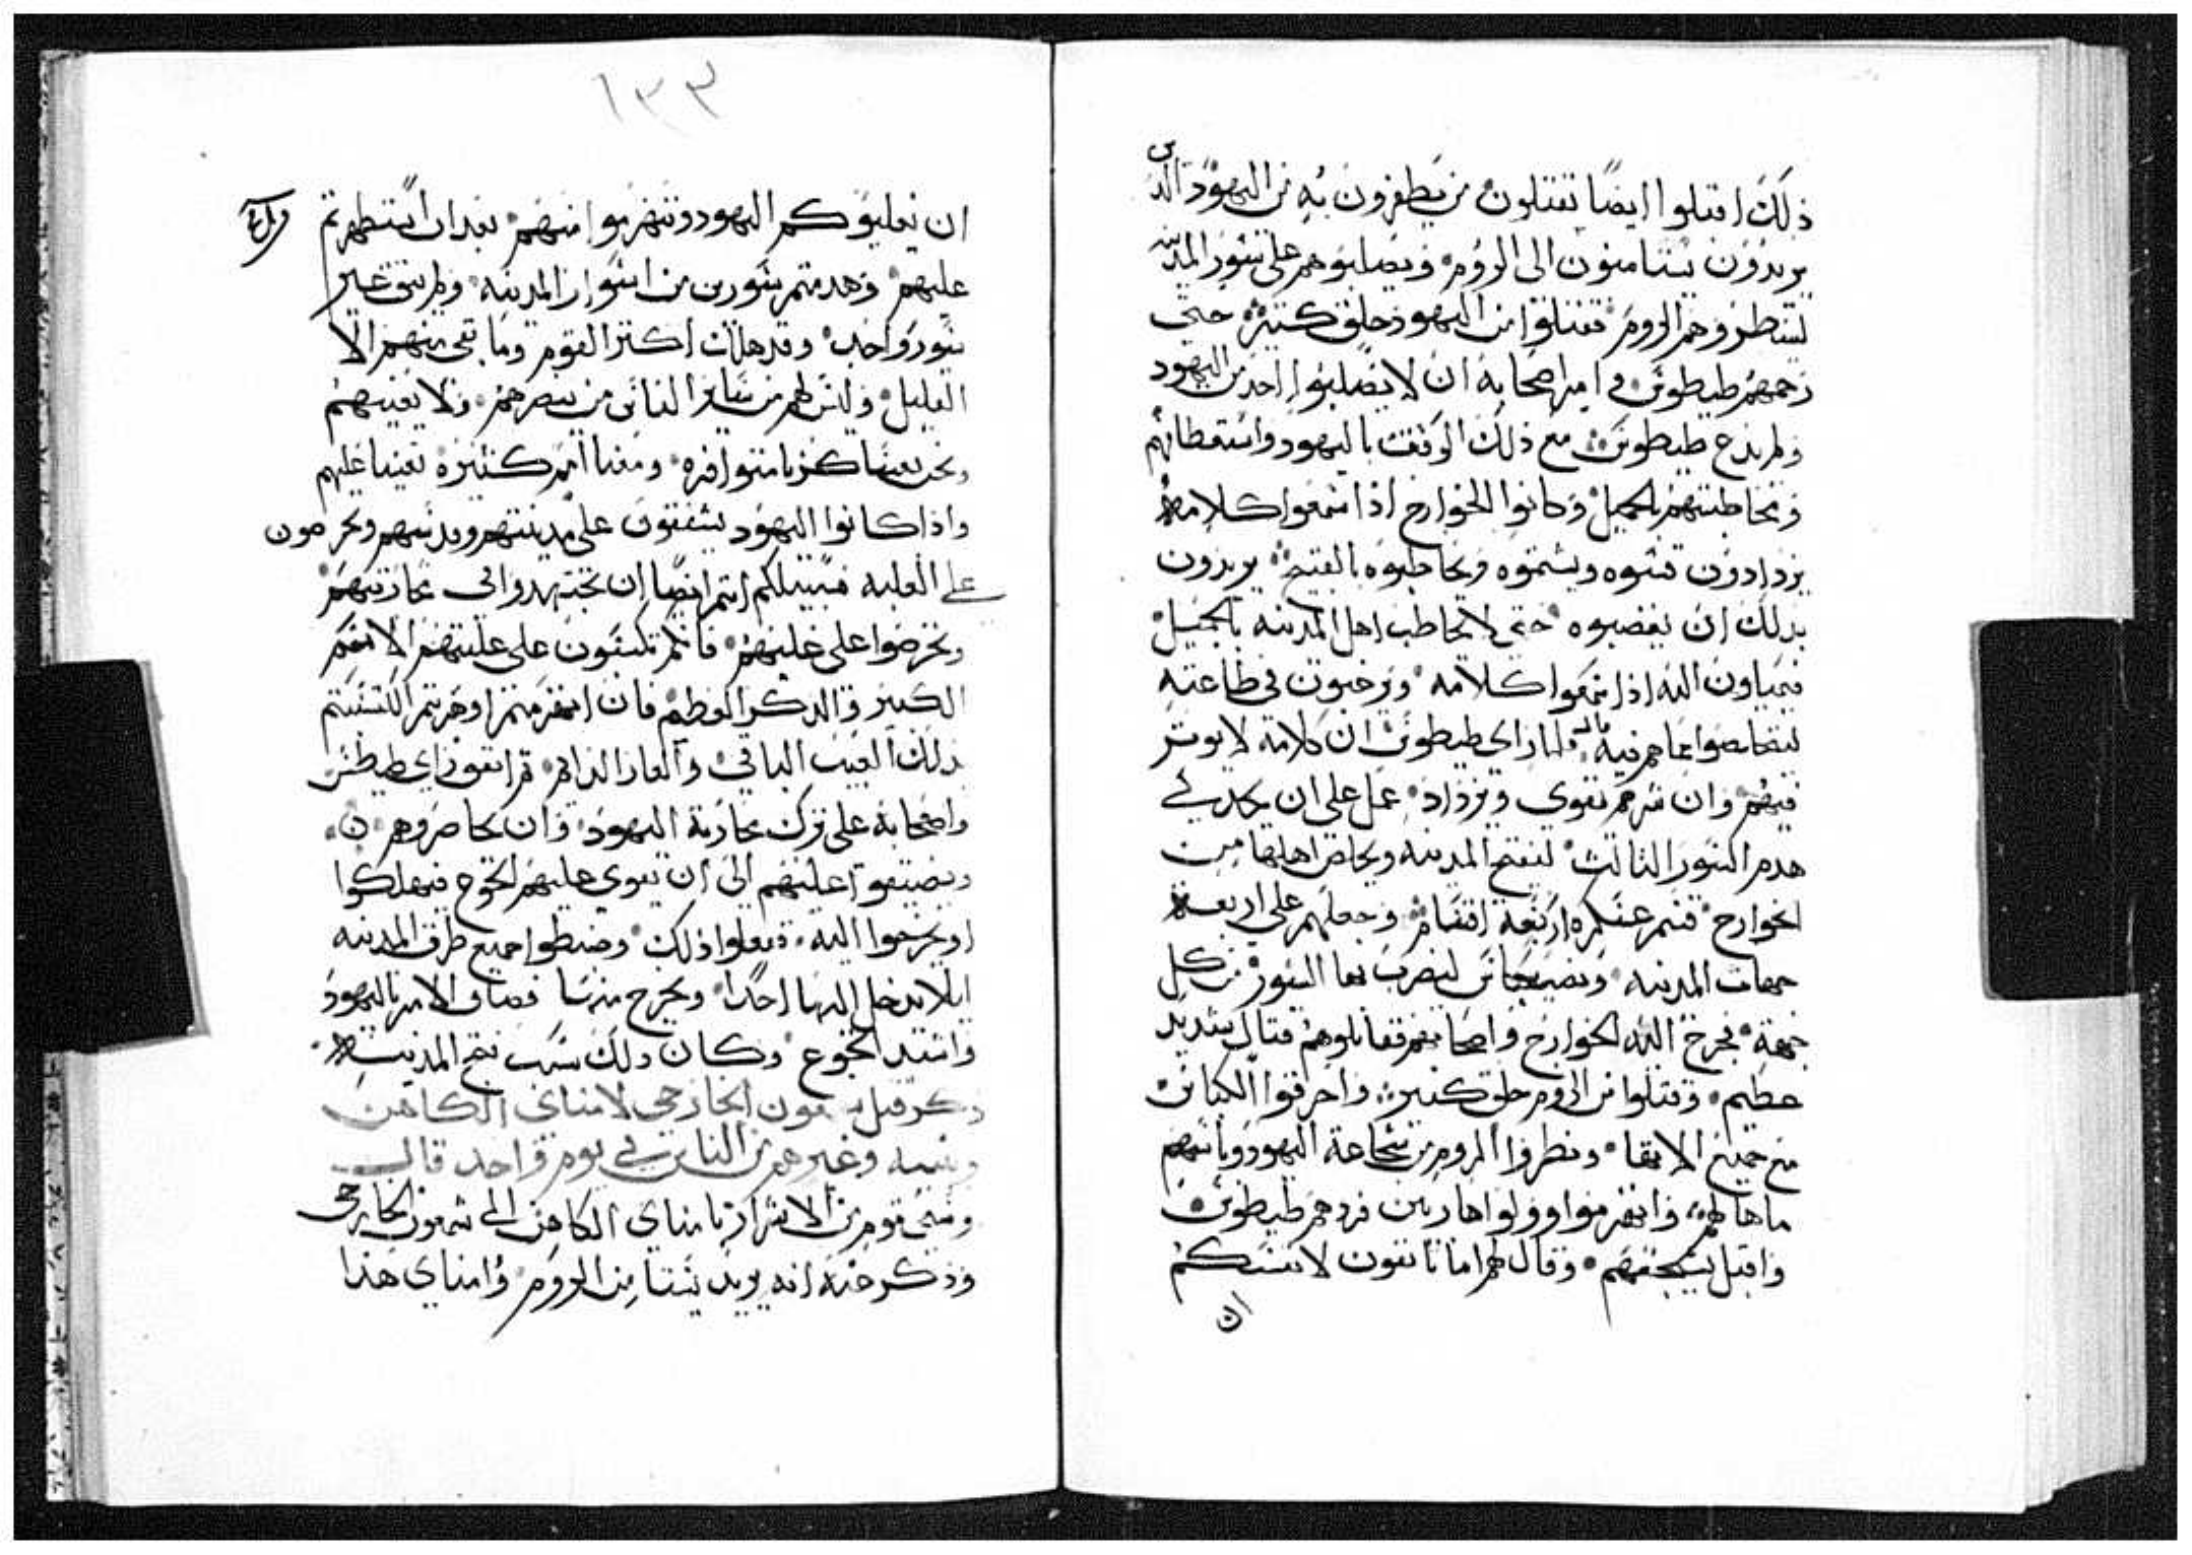 ذلك اقتلوا ايضا تقتلون من يظفرون به من اليهود الدين
يريدون يستامنون الى الروم ويصلبوهم على سور المدينه
لينظروهم الروم فقتلوا من اليهود خلق كتيره حتى
رحمهم طيطوس وامر اصحابه ان لا يصلبوا احد من اليهود
ولم يدع طيطوس مع ذلك الرفق باليهود واستعطافهم
ومخاطبتهم بالجميل وكانوا الخوارج اذا سمعوا كلامه
يزدادون قسوه ويشتموه ويخاطبوه بالقبيح يريدون
بدلك ان يغضبوه حتى لا يخاطب اهل المدينه بالجميل
فيمياون اليه اذا سمعوا كلامه ويرغبون في طاعته
ليتخلصوا مما هم فيه فلما راى طيطوس ان كلامه لا يوتر
فيهم وان شرهم يقوى ويزداد عمل على ان يجد في
هدم السور التالت ليفتح المدينه ويخلص اهلها من
الخوارج قسم عسكره اربعة اقسام وجعلهم على اربعة
جهات المدينه ونصب كباش ليضرب بها السور من كل
جهة فخرج اليه الخوارج واصحابهم فقاتلوهم قتال شديد
عظيم وقتلوا من الروم خلق كتير واحرقوا الكباش
مع جميع الالات ونظروا الروم من شجاعة اليهود وباسهم
ما هالهم وانهزموا وولوا هاربين فردهم طيطوس
واقبل يشجعهم وقال لهم اما تانفون لانفسكم
ان
١٣٣
ان يغلبوكم اليهود وتنهزموا منهم بعد ان استظهرتم
عليهم وهدمتم سورين من اسوار المدينه ولم يبق غير
سور واحد وقد هلك اكتر القوم وما بقى منهم الا
القليل وليس لهم من ساير الناس من ينصرهم ولا يعينهم
ونحن بعساكرنا متوافره ومعنا امم كتيره تعينا عليهم
واذا كانوا اليهود يشفقون على مدينتهم وقدسهم ويحرصون
على الغلبه فسبيلكم انتم ايضا ان تجتهدوا في محاربتهم
وتحرصوا على غلبهم فانكم تكسبون على غلبتهم الاسم
الكبير والدكر العظيم فان انهزمتم او هربتم اكتسبتم
بدلك العيب الباقي والعار الدايم تم اتفق راي طيطس
واصحابه على ترك محاربة اليهود وان يحاصروهم
ويضيقوا عليهم الى ان يقوى عليهم الجوع فيهلكوا
او يخرجوا اليه ففعلوا ذلك وضبطوا جميع طرق المدينه
ليلا يدخل اليها احدا ويخرج منها فضاق الامر باليهود
واشتد الجوع وكان دلك سبب فتح المدينه
ذكر قتل شمعون الخارجي لامناى الكاهن
وبنيه وغيرهم من الناس في يوم واحد قال
وسعى قوم من الاشرار بامناى الكاهن الى شمعون الخارجي
وذكر عنه انه يريد يستامن الروم وامناى هذا